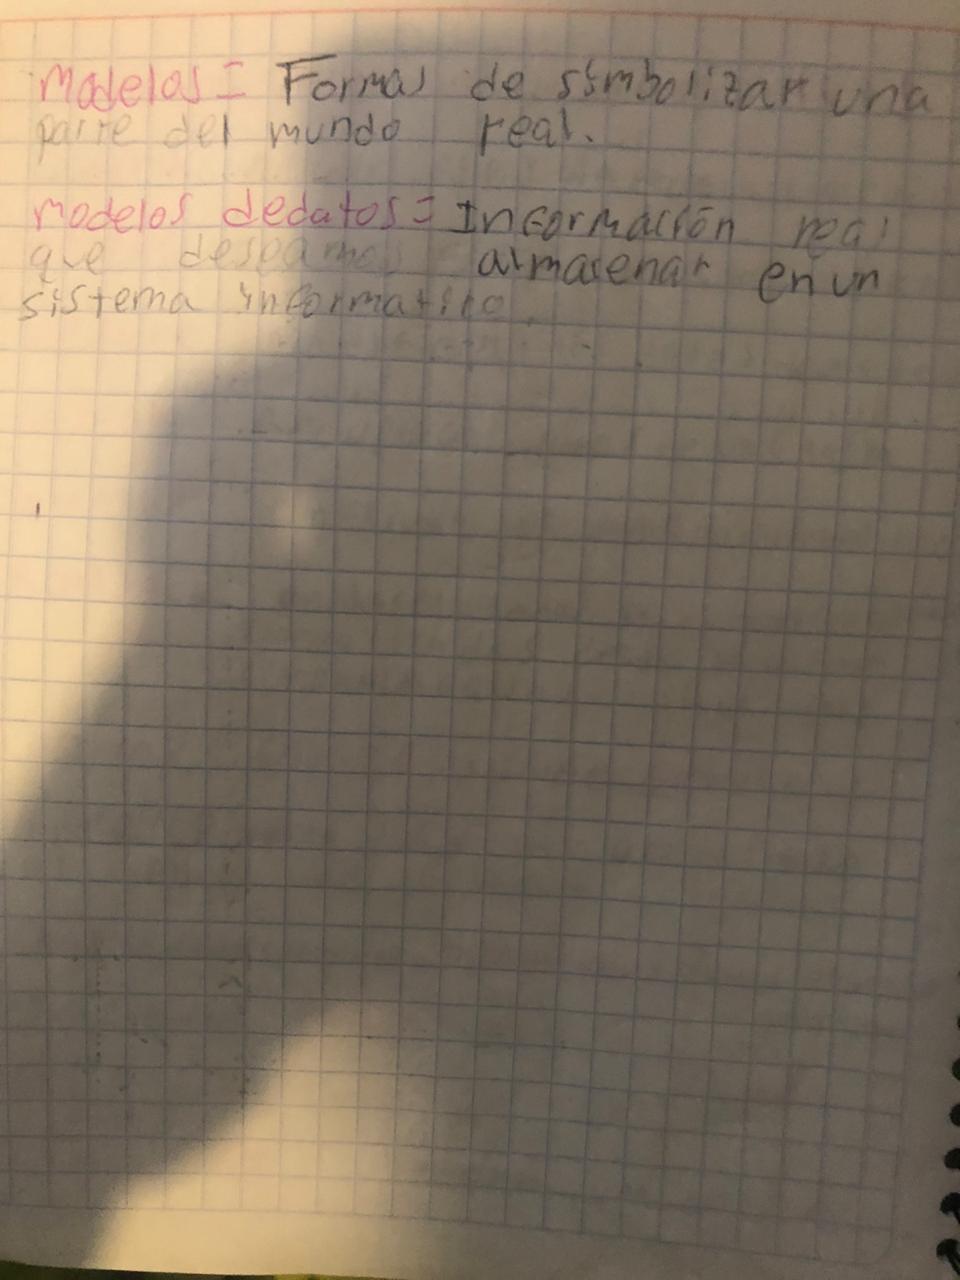 modelos = Formas de simbolizar una
parte del mundo real.
modelos dedatos = Información real
que deseamos almacenar en un
sistema informatico.